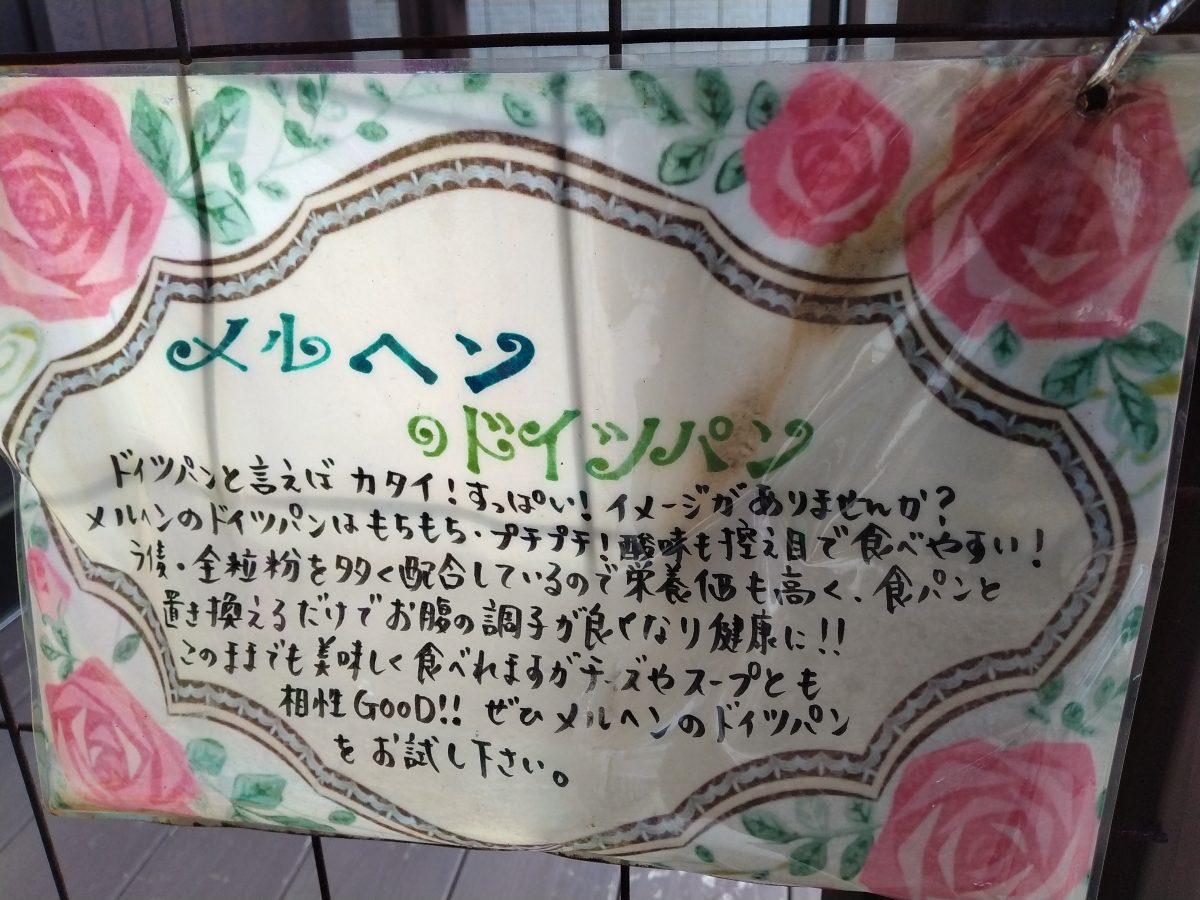 メルヘン
のドイツパン
ドイツパンと言えば カタイ！すっぱい！イメージがありませんか？
メルヘンのドイツパンはもちもち・プチプチ！酸味も控え目で食べやすい！
・全粒粉を多く配合しているので栄養価も高く、食パンと
置き換えるだけでお腹の調子が良くなり健康に!!
このままでも美味しく食べれますがチーズやスープとも
相性GOOD!! ぜひメルヘンのドイツパン
をお試し下さい。